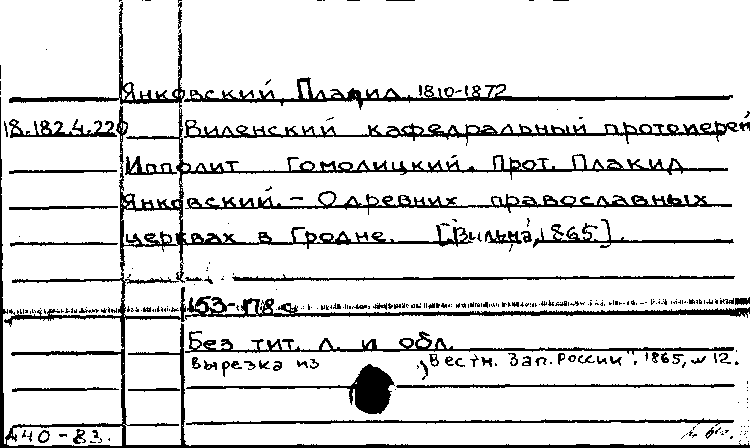 Янковский, Плакид, 1810-1872
18.182.4.220 Виленский кафедральный протоиерей
Ипполит Гомолицкий. Прот. Плакид
Янковский. - О древних православных
церквах в Гродне. [Вильна, 1865].
153-178 с
Без тит. л. и обл.
Вырезка из „Вестн. Зап. России". 1865, № 12.
А40-83.